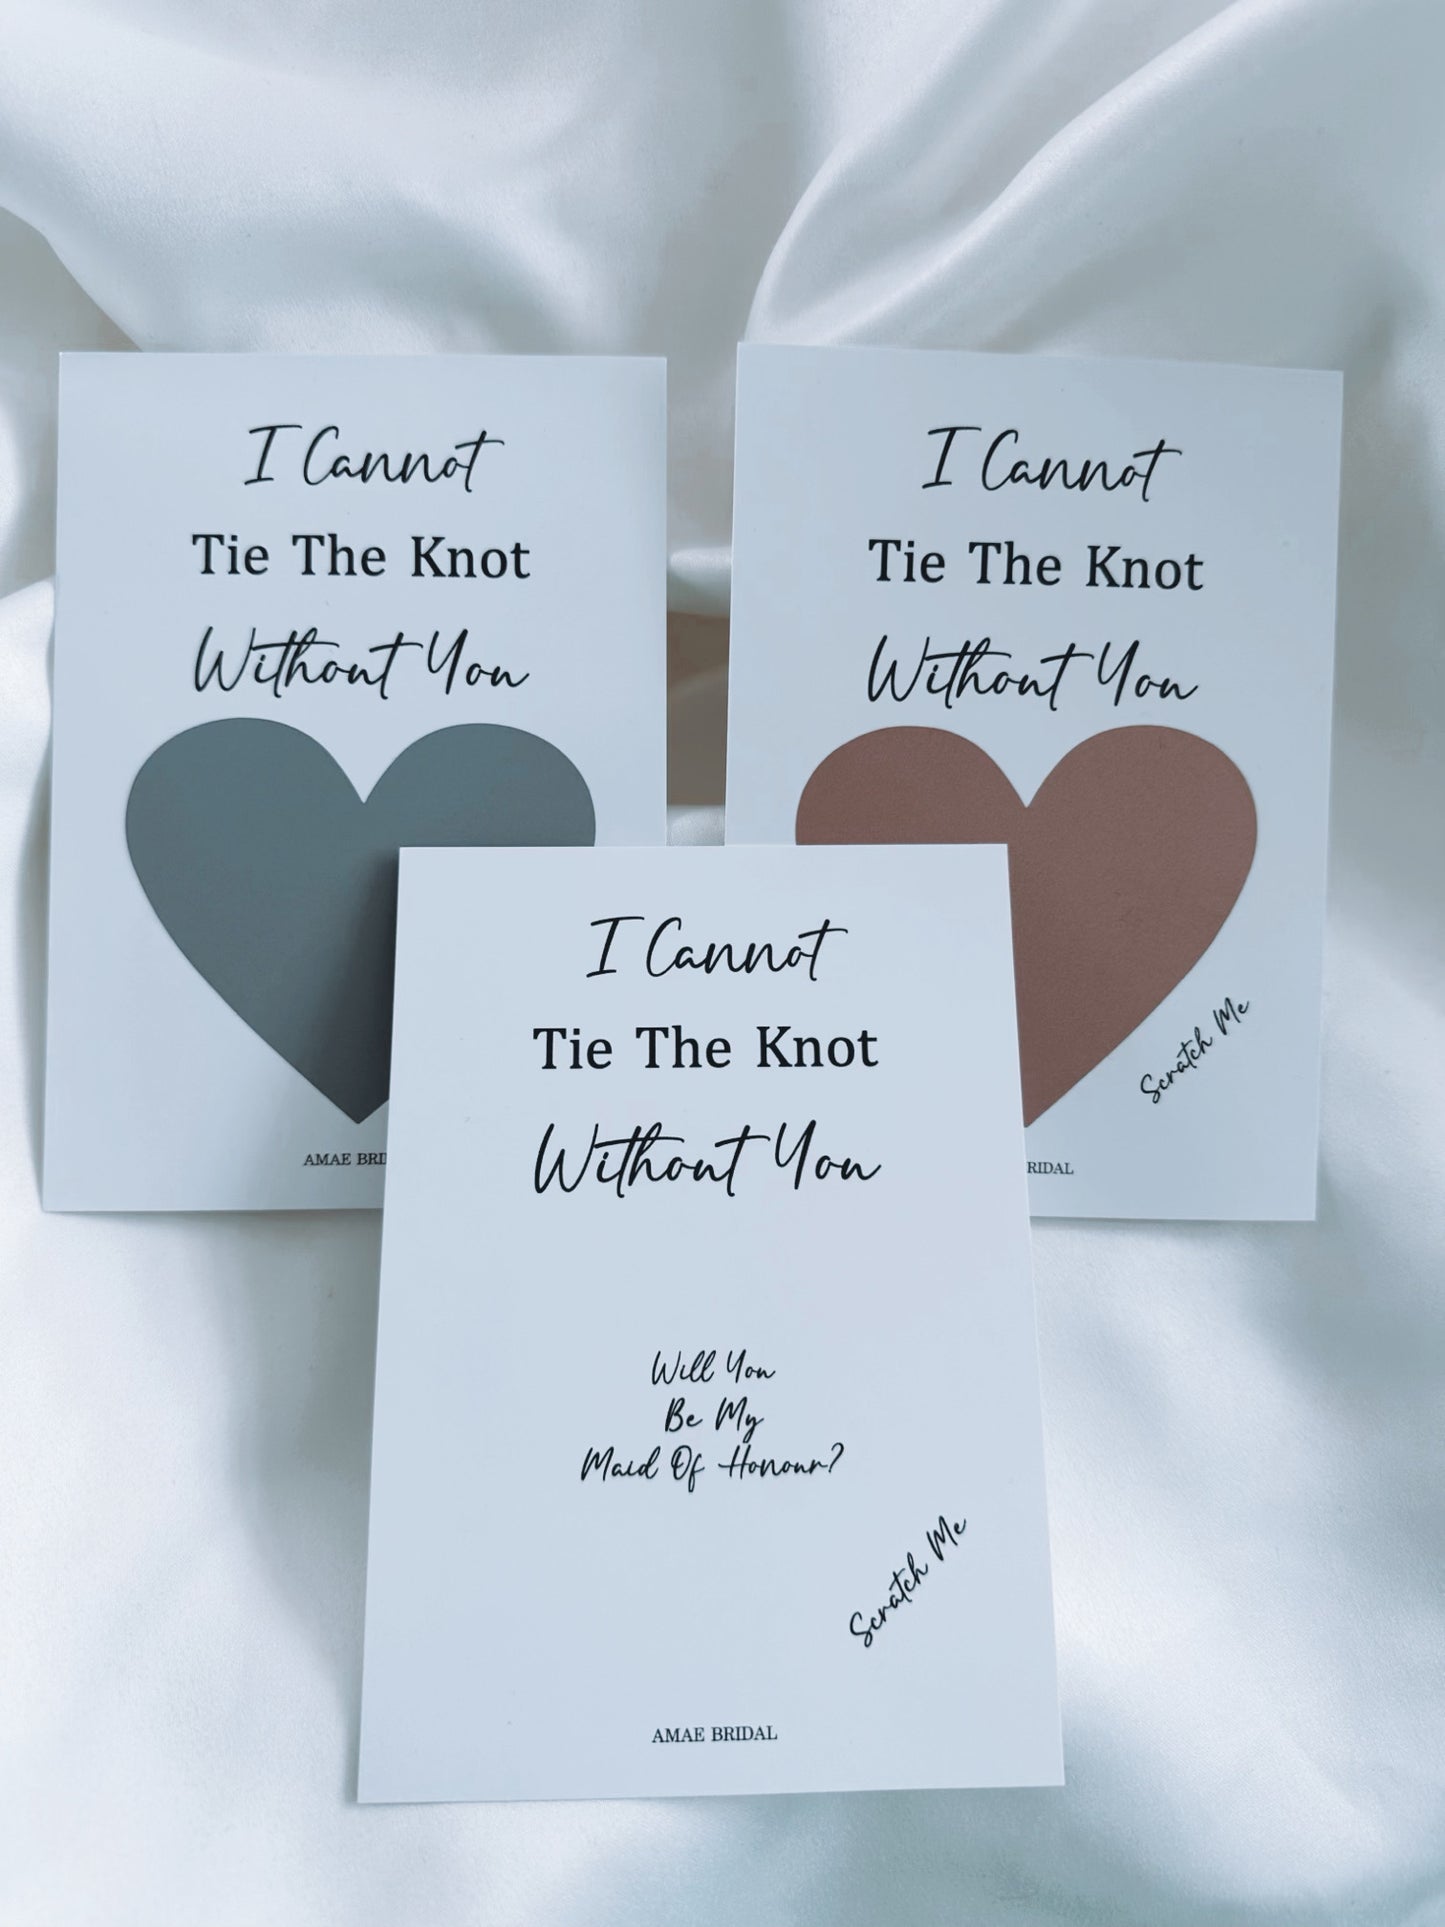 I Cannot
Tie The Knot
Without You
AMAE BRI
I Cannot
Tie The Knot
Without You
Scratch Me
RIDAL
I Cannot
Tie The Knot
Without You
Will You
Be My
Maid Of Honour?
Scratch Me
AMAE BRIDAL